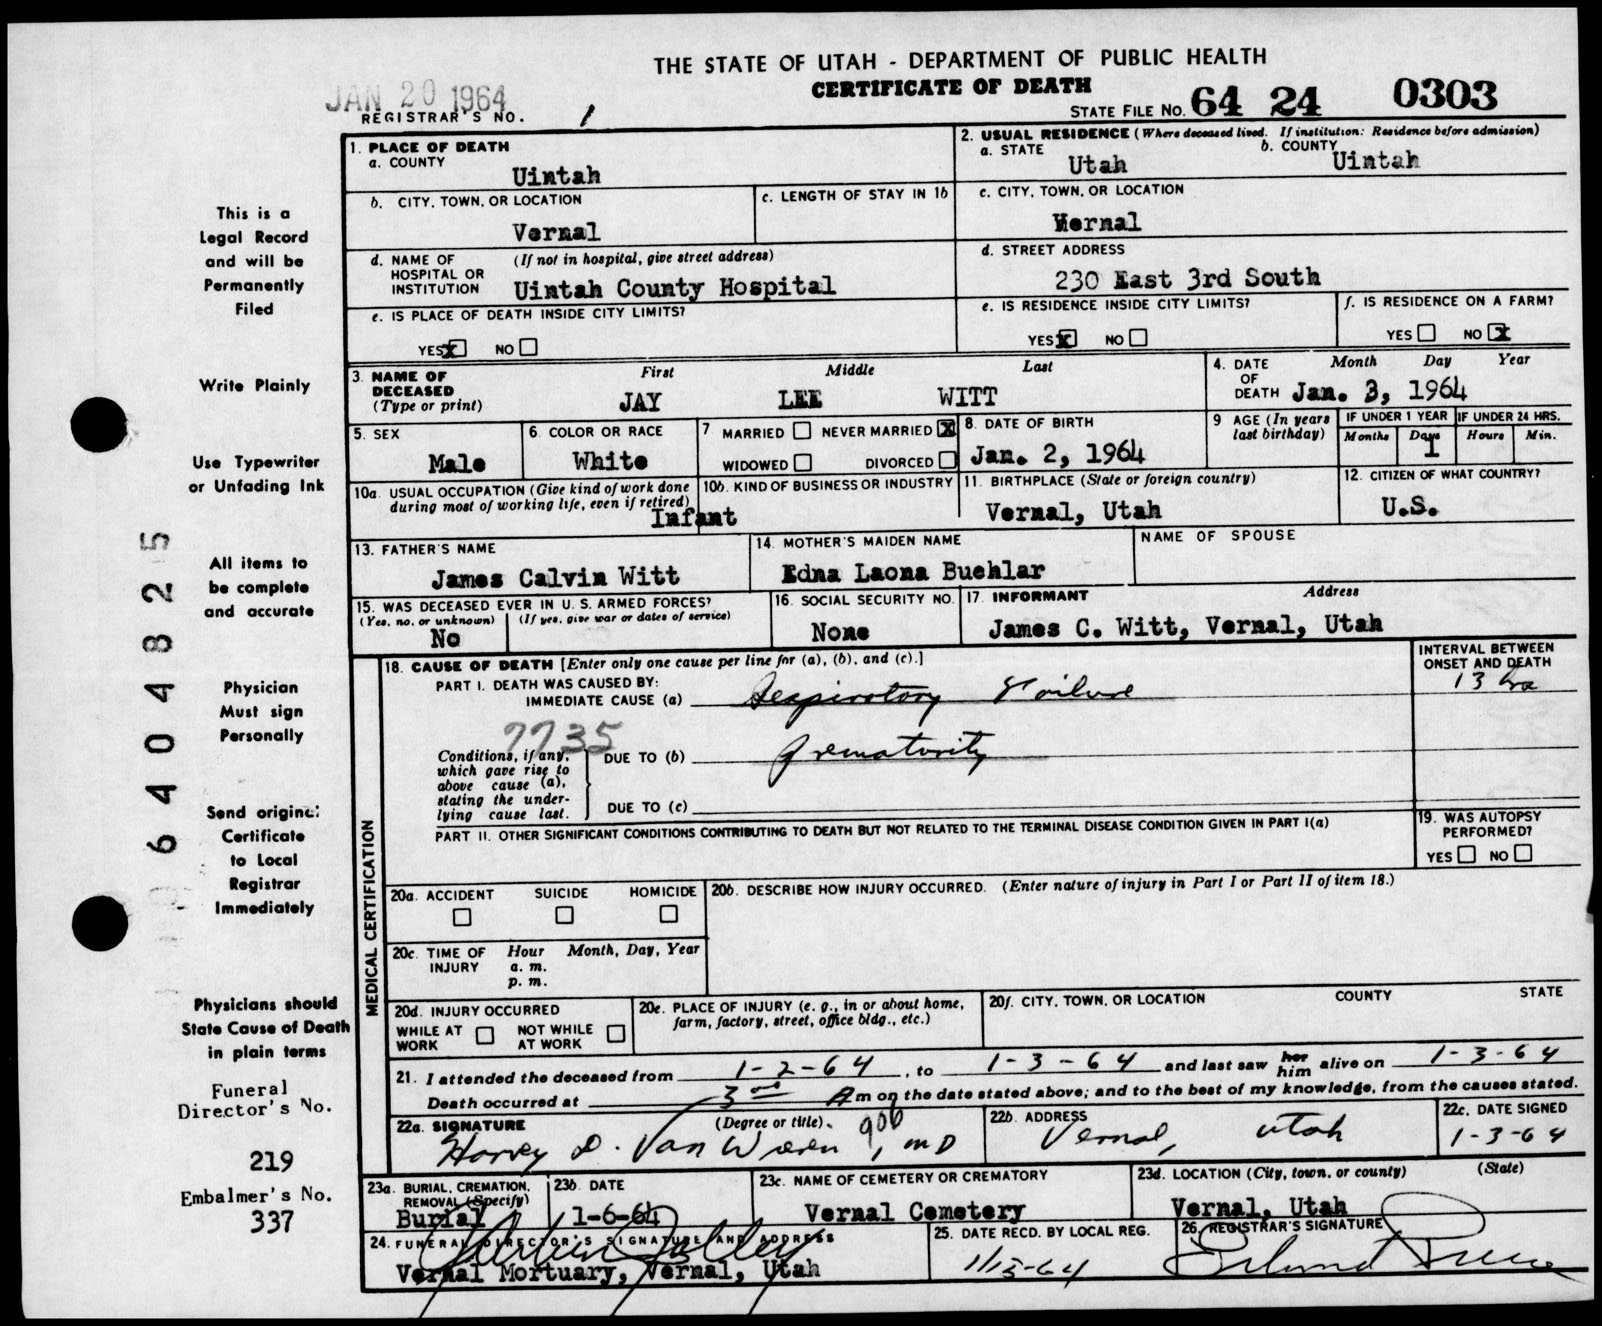 THE STATE OF UTAH - DEPARTMENT OF PUBLIC HEALTH
CERTIFICATE OF DEATH
JAN 20 1964
REGISTRAR'S NO. 1
STATE FILE NO. 64 24 0303
1. PLACE OF DEATH
a. COUNTY
Uintah
2. USUAL RESIDENCE (Where deceased lived. If institution: Residence before admission)
a. STATE
Utah
b. COUNTY
Uintah
b. CITY, TOWN, OR LOCATION
Vernal
c. LENGTH OF STAY IN 1b
c. CITY, TOWN, OR LOCATION
Vernal
d. NAME OF HOSPITAL OR INSTITUTION
(If not in hospital, give street address)
Uintah County Hospital
d. STREET ADDRESS
230 East 3rd South
e. IS PLACE OF DEATH INSIDE CITY LIMITS?
YES X NO
e. IS RESIDENCE INSIDE CITY LIMITS?
YES X NO
f. IS RESIDENCE ON A FARM?
YES NO X
3. NAME OF DECEASED
(Type or print)
First Middle Last
JAY LEE WITT
4. DATE OF DEATH
Month Day Year
Jan. 3, 1964
5. SEX
Male
6. COLOR OR RACE
White
7 MARRIED NEVER MARRIED X
WIDOWED DIVORCED
8. DATE OF BIRTH
Jan. 2, 1964
9 AGE (In years last birthday)
IF UNDER 1 YEAR
Months Days
1
IF UNDER 24 HRS.
Hours Min.
10a. USUAL OCCUPATION (Give kind of work done during most of working life, even if retired)
Infant
10b. KIND OF BUSINESS OR INDUSTRY
11. BIRTHPLACE (State or foreign country)
Vernal, Utah
12. CITIZEN OF WHAT COUNTRY?
U.S.
13. FATHER'S NAME
James Calvin Witt
14. MOTHER'S MAIDEN NAME
Edna Laona Buehlar
NAME OF SPOUSE
15. WAS DECEASED EVER IN U. S. ARMED FORCES?
(Yes, no, or unknown) (If yes, give war or dates of service)
No
16. SOCIAL SECURITY NO.
None
17. INFORMANT Address
James C. Witt, Vernal, Utah
MEDICAL CERTIFICATION
18. CAUSE OF DEATH [Enter only one cause per line for (a), (b), and (c).]
PART I. DEATH WAS CAUSED BY:
IMMEDIATE CAUSE (a) Respiratory Failure
INTERVAL BETWEEN ONSET AND DEATH
13 hrs
7735
Conditions, if any, which gave rise to above cause (a), stating the underlying cause last.
DUE TO (b) Prematurity
DUE TO (c)
PART II. OTHER SIGNIFICANT CONDITIONS CONTRIBUTING TO DEATH BUT NOT RELATED TO THE TERMINAL DISEASE CONDITION GIVEN IN PART I(a)
19. WAS AUTOPSY PERFORMED?
YES NO
20a. ACCIDENT SUICIDE HOMICIDE
20b. DESCRIBE HOW INJURY OCCURRED. (Enter nature of injury in Part I or Part II of item 18.)
20c. TIME OF INJURY
Hour Month, Day, Year
a. m.
p. m.
20d. INJURY OCCURRED
WHILE AT WORK NOT WHILE AT WORK
20e. PLACE OF INJURY (e. g., in or about home, farm, factory, street, office bldg., etc.)
20f. CITY, TOWN, OR LOCATION COUNTY STATE
21. I attended the deceased from 1-2-64, to 1-3-64 and last saw her him alive on 1-3-64
Death occurred at 3 00 A m on the date stated above; and to the best of my knowledge, from the causes stated.
22a. SIGNATURE (Degree or title)
Harvey D. Van Wieren, MD
906
22b. ADDRESS
Vernal, Utah
22c. DATE SIGNED
1-3-64
23a. BURIAL, CREMATION, REMOVAL (Specify)
Burial
23b. DATE
1-6-64
23c. NAME OF CEMETERY OR CREMATORY
Vernal Cemetery
23d. LOCATION (City, town, or county) (State)
Vernal, Utah
24. FUNERAL DIRECTOR'S SIGNATURE AND ADDRESS
Vernal Mortuary, Vernal, Utah
25. DATE RECD. BY LOCAL REG.
1/13-64
26. REGISTRAR'S SIGNATURE
This is a
Legal Record
and will be
Permanently
Filed
Write Plainly
Use Typewriter
or Unfading Ink
All items to
be complete
and accurate
Physician
Must sign
Personally
Send original
Certificate
to Local
Registrar
Immediately
Physicians should
State Cause of Death
in plain terms
Funeral
Director's No.
219
Embalmer's No.
337
6404825